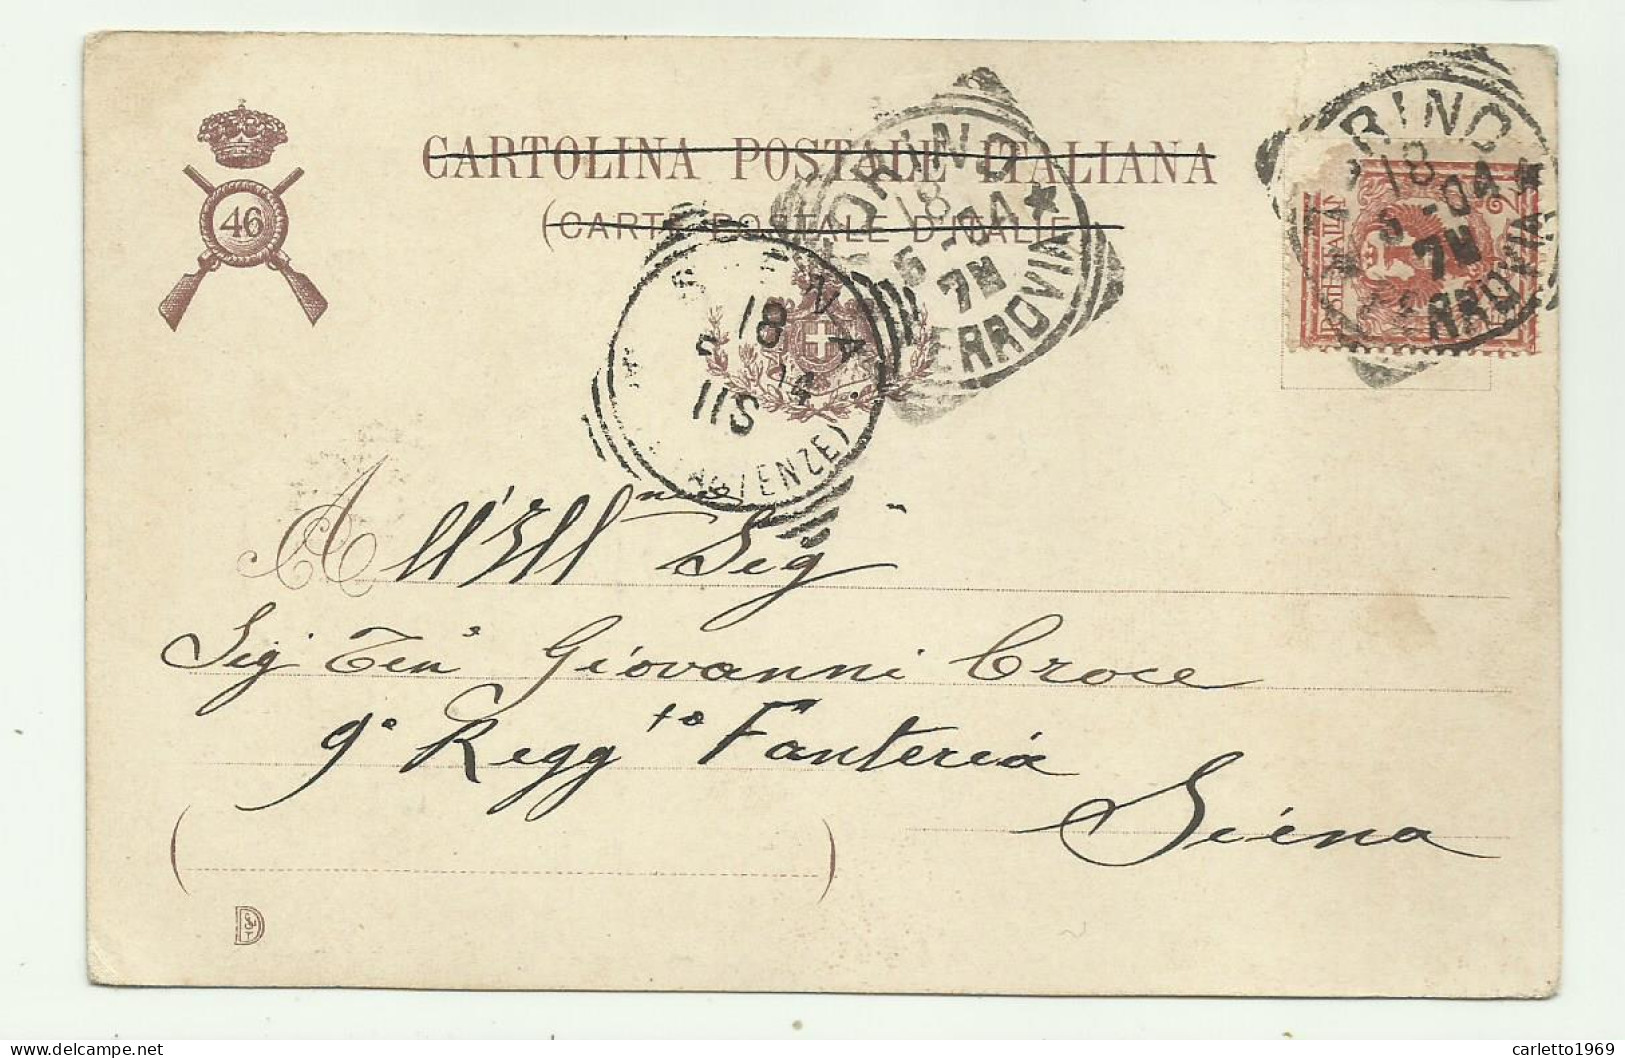 46
CARTOLINA POSTALE ITALIANA
(CARTE POSTALE D'ITALIE)
TORINO
18
5-04
7M
FERROVIA
TORINO
18
5-04
7M
FERROVIA
POSTE ITALIANE
SIENA
18
04
11S
All'Ill.mo Sig
Sig. Ten.e Giovanni Croce
9° Regg.to Fanteria
Siena
carletto1969